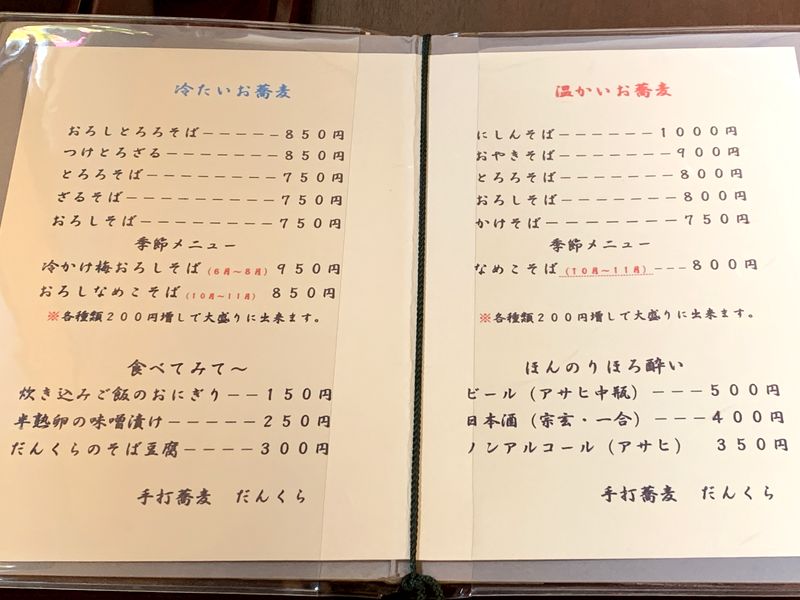 冷たいお蕎麦
おろしとろろそば－－－－－８５０円
つけとろざる－－－－－－－８５０円
とろろそば－－－－－－－－７５０円
ざるそば－－－－－－－－－７５０円
おろしそば－－－－－－－－７５０円
季節メニュー
冷かけ梅おろしそば（6月～8月）９５０円
おろしなめこそば（10月～11月）８５０円
※各種類２００円増しで大盛りに出来ます。
食べてみて～
炊き込みご飯のおにぎり－－１５０円
半熟卵の味噌漬け－－－－－２５０円
だんくらのそば豆腐－－－－３００円
手打蕎麦　だんくら
温かいお蕎麦
にしんそば－－－－－－－１０００円
おやきそば－－－－－－－９００円
とろろそば－－－－－－－８００円
おろしそば－－－－－－－８００円
かけそば－－－－－－－－７５０円
季節メニュー
なめこそば（10月～11月）－－－８００円
※各種類２００円増しで大盛りに出来ます。
ほんのりほろ酔い
ビール（アサヒ中瓶）－－－５００円
日本酒（宗玄・一合）－－－４００円
ノンアルコール（アサヒ）　３５０円
手打蕎麦　だんくら